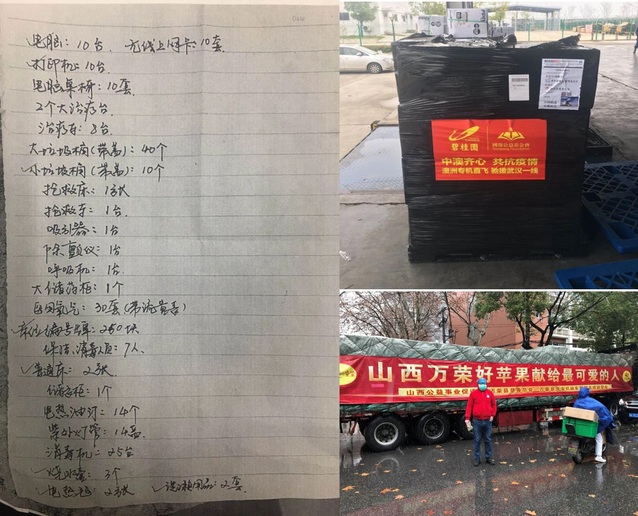 电脑：10台、无线上网卡：10套
打印机：10台
电脑桌椅：10套
2个大治疗台
治疗车：8台
大垃圾桶(带盖)：40个
小垃圾桶(带盖)：10个
抢救床：13张
抢救车：1台
吸引器：1台
除颤仪：1台
呼吸机：1台
大储药柜：1个
氧气：30套(带流量表)
床位编号牌：250块
保洁、消毒人员：7人
普通床：23张
柜：1个
电热油汀：14个
紫外灯管：14
消毒机：25台
烧水壶：3个
电热毯：23张 洗漱用品：2套
碧桂园
国强公益基金会
中澳齐心 共抗疫情
澳洲专机直飞 驰援武汉一线
山西万荣好苹果献给最可爱的人
山西公益事业促